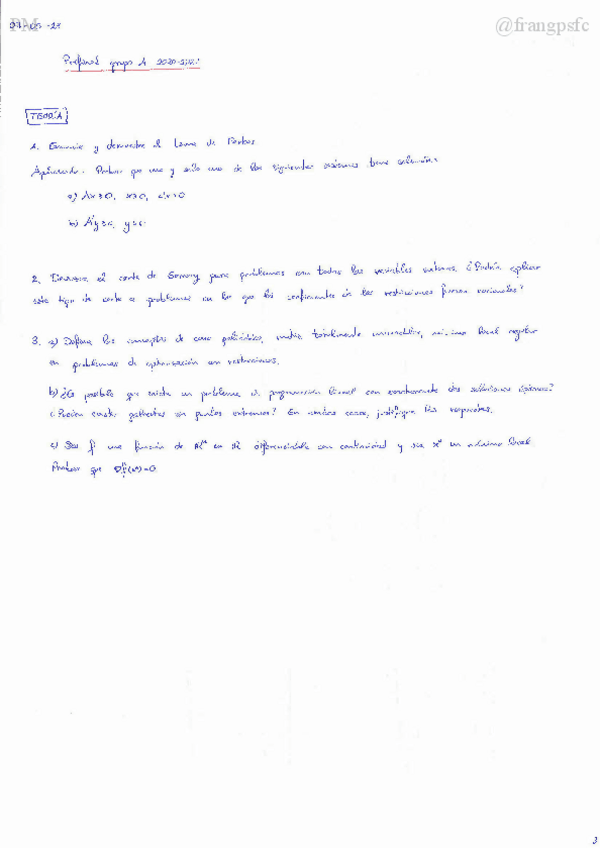 PM
@frangpsfc
Prefinal grupo A 2020-2021
TEORÍA
1. Enuncie y demuestre el Lema de Farkas
Aplicando. Probar que uno y sólo uno de los siguientes sistemas tiene solución:
a) Ax ≥ 0, x ≥ 0,
b) A'y ≥
2. Demostrar el corte de Gomory para problemas con todas las variables enteras. ¿Podría aplicar
este tipo de corte a problemas en los que los coeficientes en las restricciones fueran racionales?
3. a) Defina los conceptos de cono poliédrico, matriz totalmente unimodular, mínimo local regular
en problemas de optimización con restricciones.
b) ¿Es posible que exista un problema de programación lineal con exactamente dos soluciones óptimas?
¿Pueden existir poliedros sin puntos extremos? En ambos casos, justifique las respuestas.
c) Sea f una función de ℝⁿ en ℝ diferenciable con continuidad y sea x* un mínimo local.
Probar que ∇f(x*)=0
3